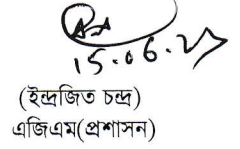 15.06.23
(ইন্দ্রজিত চন্দ্র)
এজিএম(প্রশাসন)